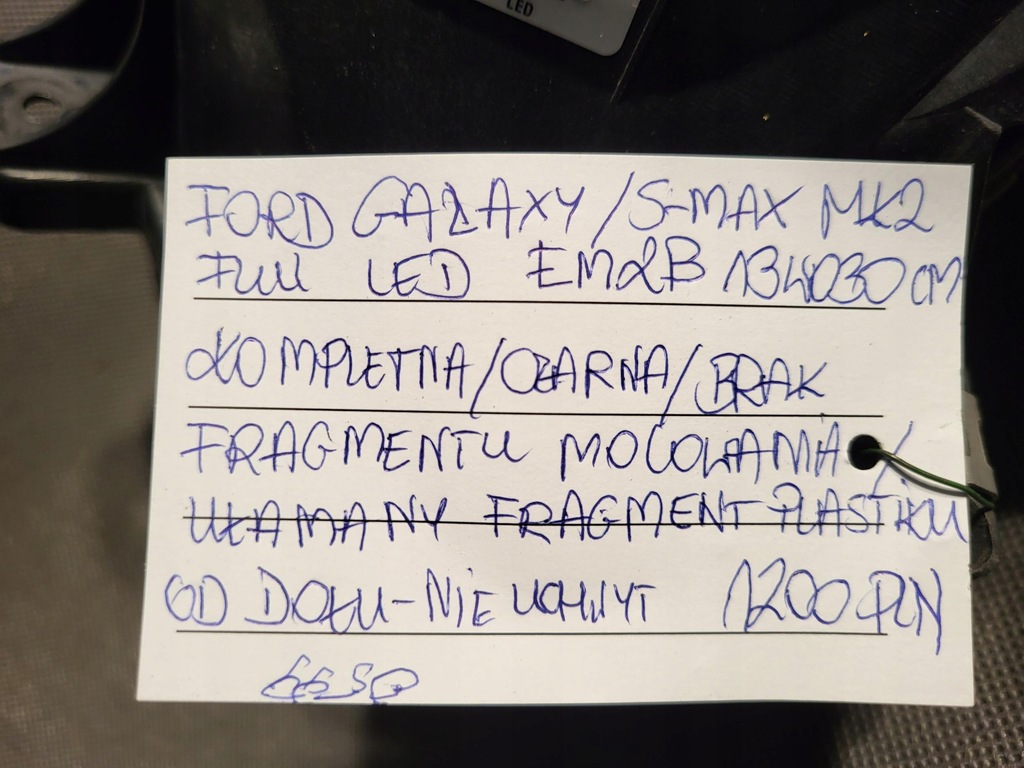 LED
FORD GALAXY/S-MAX MK2
FULL LED EM2B 134030CM
KOMPLETNA/CZARNA/BRAK
FRAGMENTU MOCOWANIA/
UŁAMANY FRAGMENT PLASTIKU
OD DOŁU-NIE UCHWYT 1200 PLN